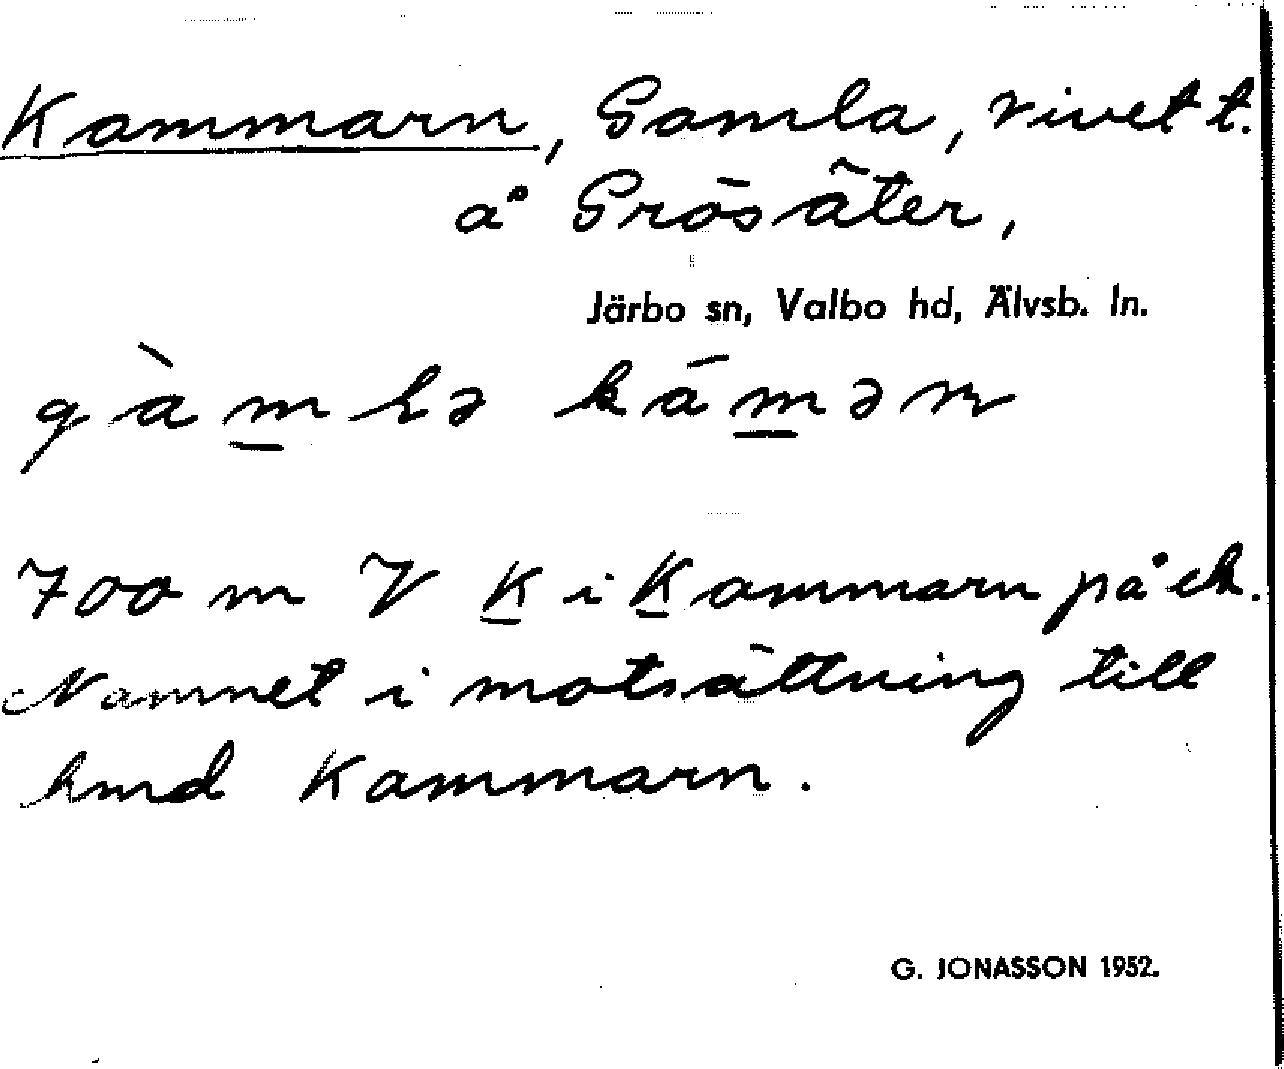 Kammarn, Gamla, rivet t.
å Grösäter,
Järbo sn, Valbo hd, Älvsb. ln.
gàm̲lə kám̲əɳ
700 m V K̲ i K̲ammarn på ek.
Namnet i motsättning till
hmd Kammarn.
G. JONASSON 1952.